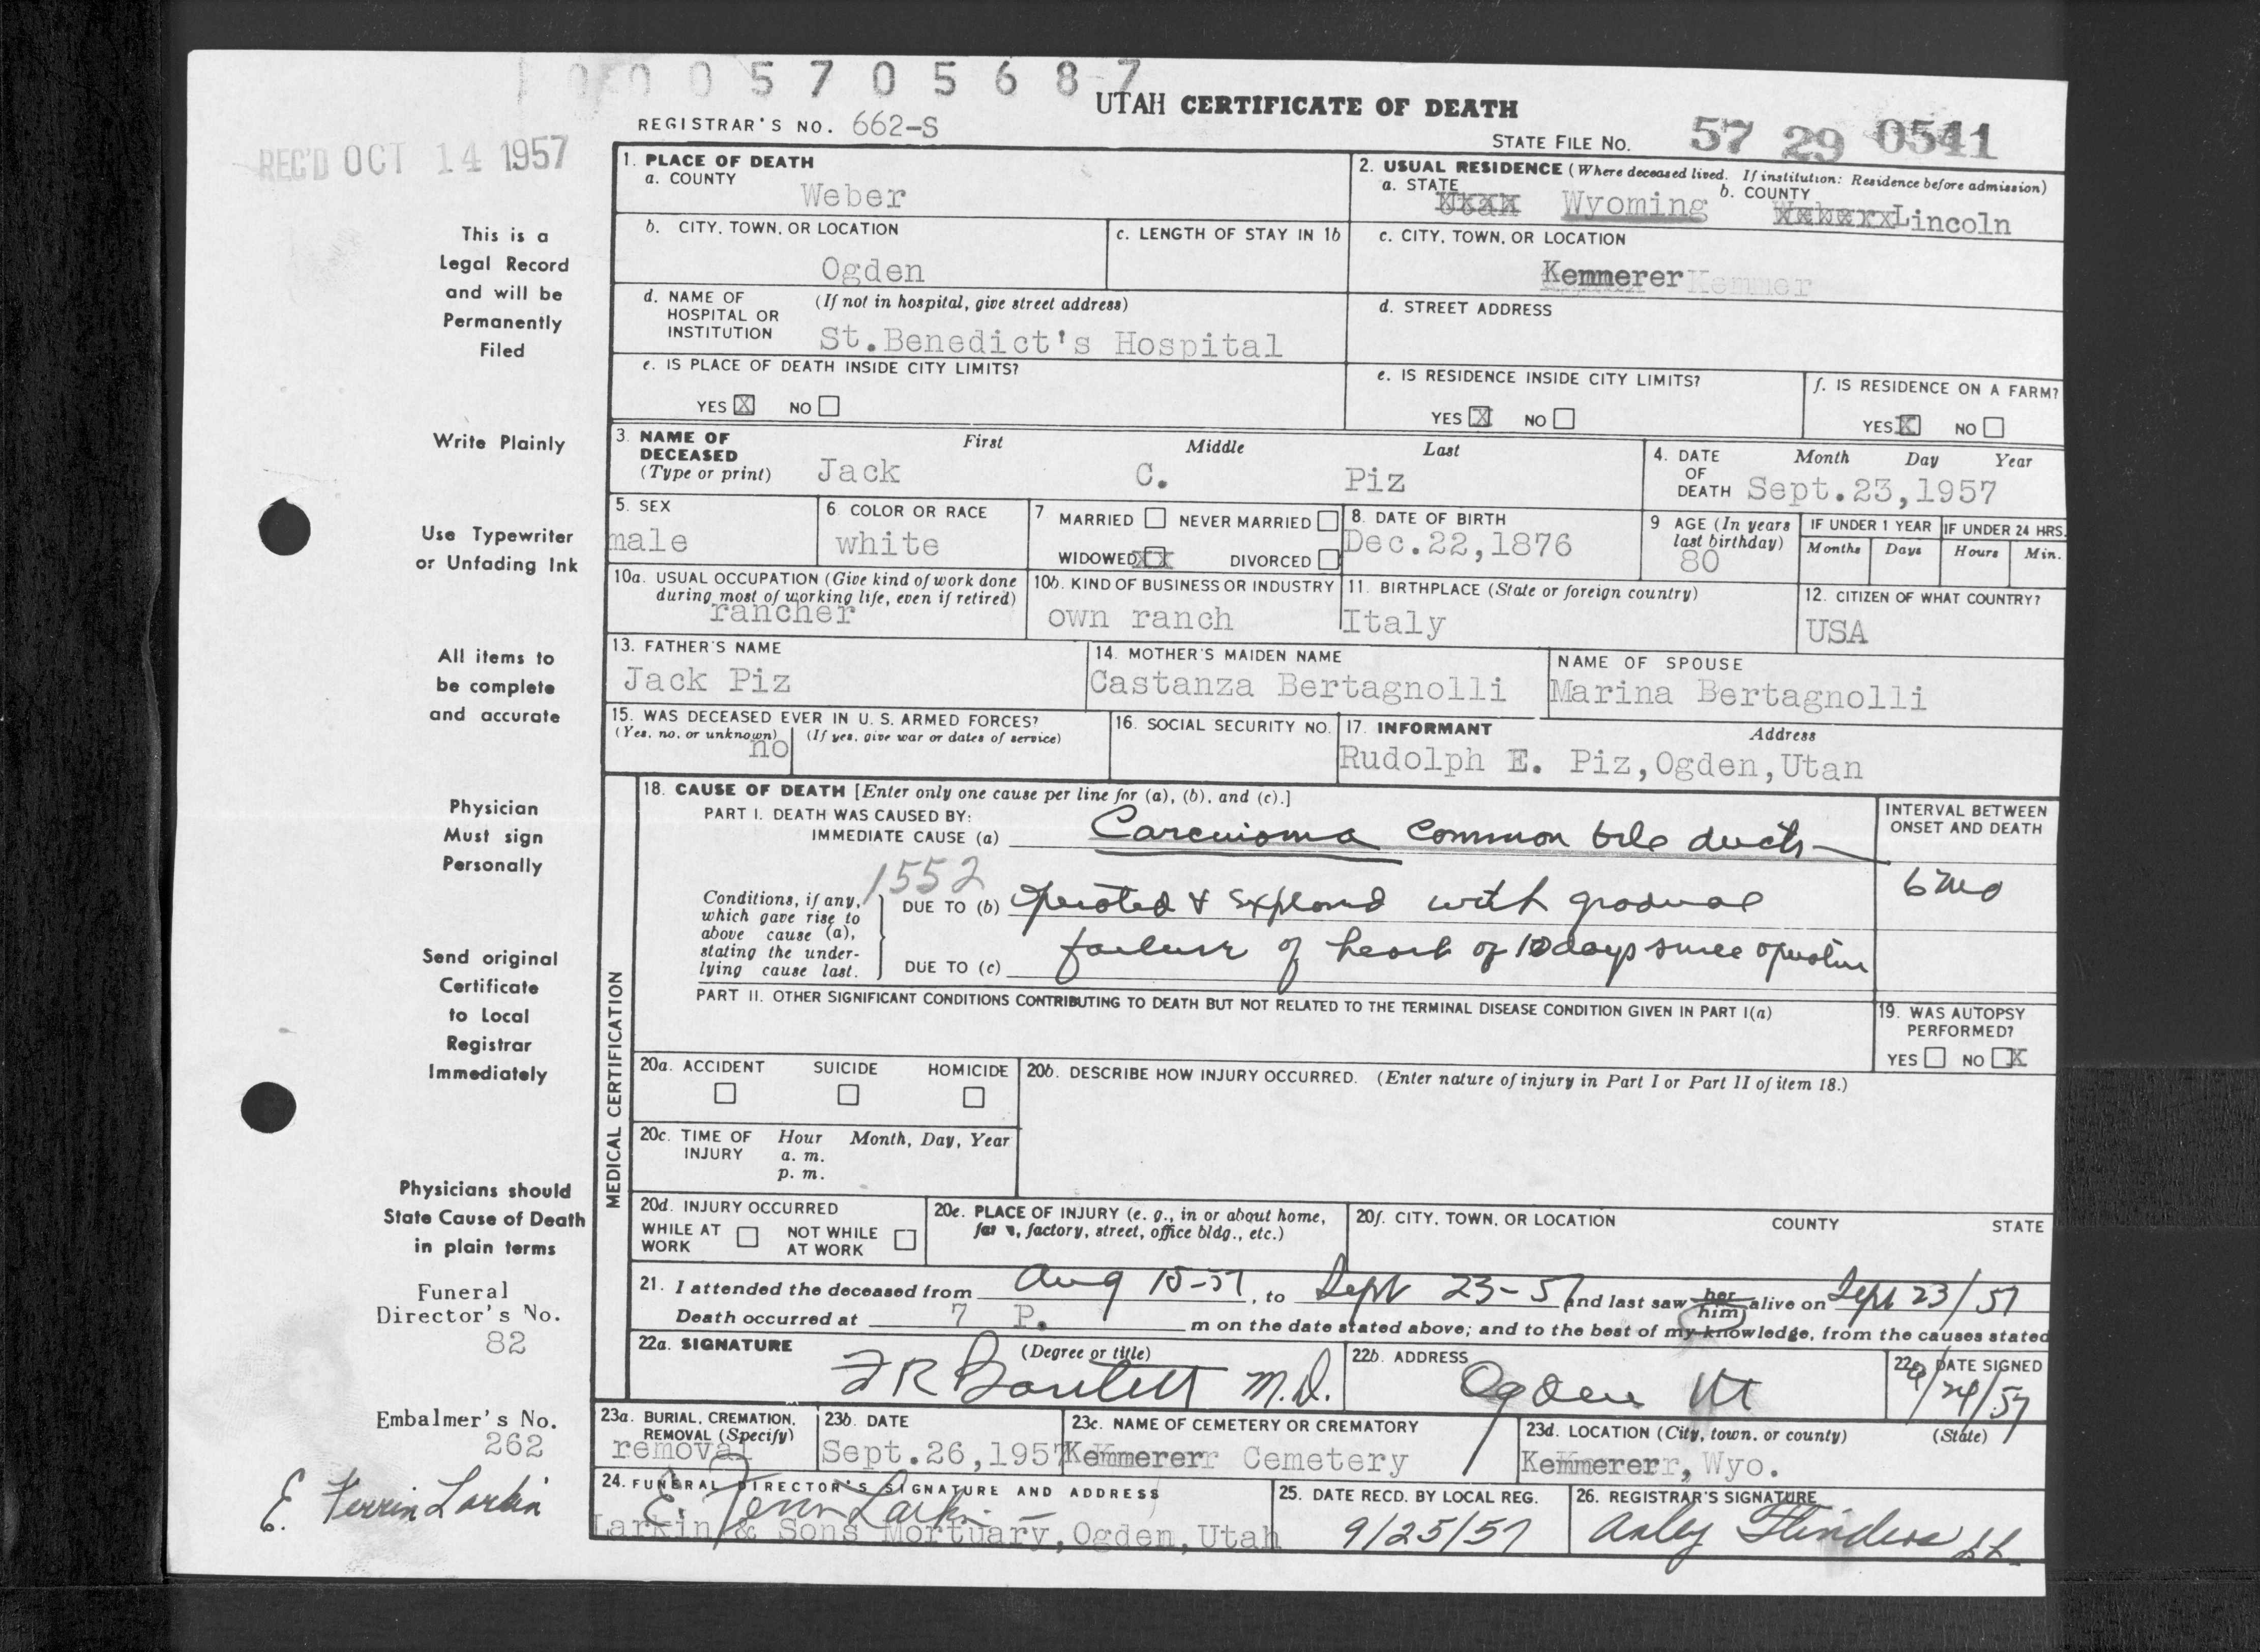 0005705687
UTAH CERTIFICATE OF DEATH
REGISTRAR'S NO. 662-S
STATE FILE NO. 57 29 0541
REC'D OCT 14 1957
This is a
Legal Record
and will be
Permanently
Filed
Write Plainly
Use Typewriter
or Unfading Ink
All items to
be complete
and accurate
Physician
Must sign
Personally
Send original
Certificate
to Local
Registrar
Immediately
Physicians should
State Cause of Death
in plain terms
Funeral
Director's No.
82
Embalmer's No.
262
E. Ferrin Larkin
1. PLACE OF DEATH
a. COUNTY
Weber
2. USUAL RESIDENCE (Where deceased lived. If institution: Residence before admission)
a. STATE
Utah Wyoming
b. COUNTY
Weber Lincoln
b. CITY, TOWN, OR LOCATION
Ogden
c. LENGTH OF STAY IN 1b
c. CITY, TOWN, OR LOCATION
Kemmerer Kemmer
d. NAME OF
HOSPITAL OR
INSTITUTION
(If not in hospital, give street address)
St.Benedict's Hospital
d. STREET ADDRESS
e. IS PLACE OF DEATH INSIDE CITY LIMITS?
YES X NO
e. IS RESIDENCE INSIDE CITY LIMITS?
YES X NO
f. IS RESIDENCE ON A FARM?
YES X NO
3. NAME OF
DECEASED
(Type or print)
First Middle Last
Jack C. Piz
4. DATE
OF
DEATH
Month Day Year
Sept.23,1957
5. SEX
male
6. COLOR OR RACE
white
7 MARRIED NEVER MARRIED
WIDOWED XX DIVORCED
8. DATE OF BIRTH
Dec.22,1876
9 AGE (In years
last birthday)
80
IF UNDER 1 YEAR
Months Days
IF UNDER 24 HRS.
Hours Min.
10a. USUAL OCCUPATION (Give kind of work done
during most of working life, even if retired)
rancher
10b. KIND OF BUSINESS OR INDUSTRY
own ranch
11. BIRTHPLACE (State or foreign country)
Italy
12. CITIZEN OF WHAT COUNTRY?
USA
13. FATHER'S NAME
Jack Piz
14. MOTHER'S MAIDEN NAME
Castanza Bertagnolli
NAME OF SPOUSE
Marina Bertagnolli
15. WAS DECEASED EVER IN U. S. ARMED FORCES?
(Yes, no, or unknown) (If yes, give war or dates of service)
no
16. SOCIAL SECURITY NO.
17. INFORMANT Address
Rudolph E. Piz,Ogden,Utan
MEDICAL CERTIFICATION
18. CAUSE OF DEATH [Enter only one cause per line for (a), (b), and (c).]
PART I. DEATH WAS CAUSED BY:
IMMEDIATE CAUSE (a) Carcinoma common bile ducts
INTERVAL BETWEEN
ONSET AND DEATH
6 mo
1552
Conditions, if any,
which gave rise to
above cause (a),
stating the under-
lying cause last.
DUE TO (b) Operated & Explored with gradual
DUE TO (c) failure of heart of 10 days since operation
PART II. OTHER SIGNIFICANT CONDITIONS CONTRIBUTING TO DEATH BUT NOT RELATED TO THE TERMINAL DISEASE CONDITION GIVEN IN PART I(a)
19. WAS AUTOPSY
PERFORMED?
YES NO X
20a. ACCIDENT SUICIDE HOMICIDE
20b. DESCRIBE HOW INJURY OCCURRED. (Enter nature of injury in Part I or Part II of item 18.)
20c. TIME OF
INJURY
Hour Month, Day, Year
a. m.
p. m.
20d. INJURY OCCURRED
WHILE AT
WORK
NOT WHILE
AT WORK
20e. PLACE OF INJURY (e. g., in or about home,
farm, factory, street, office bldg., etc.)
20f. CITY, TOWN, OR LOCATION COUNTY STATE
21. I attended the deceased from Aug 15-57, to Sept 23-57 and last saw her him alive on Sept 23/57
Death occurred at 7 P. m on the date stated above; and to the best of my knowledge, from the causes stated
22a. SIGNATURE (Degree or title)
F R Bartlett M.D.
22b. ADDRESS
Ogden Ut
22c. DATE SIGNED
9/24/57
23a. BURIAL, CREMATION,
REMOVAL (Specify)
removal
23b. DATE
Sept.26,1957
23c. NAME OF CEMETERY OR CREMATORY
Kemmerer Cemetery
23d. LOCATION (City, town, or county) (State)
Kemmerer, Wyo.
24. FUNERAL DIRECTOR'S SIGNATURE AND ADDRESS
E. Ferrin Larkin
Larkin & Sons Mortuary,Ogden,Utah
25. DATE RECD. BY LOCAL REG.
9/25/57
26. REGISTRAR'S SIGNATURE
Flinders